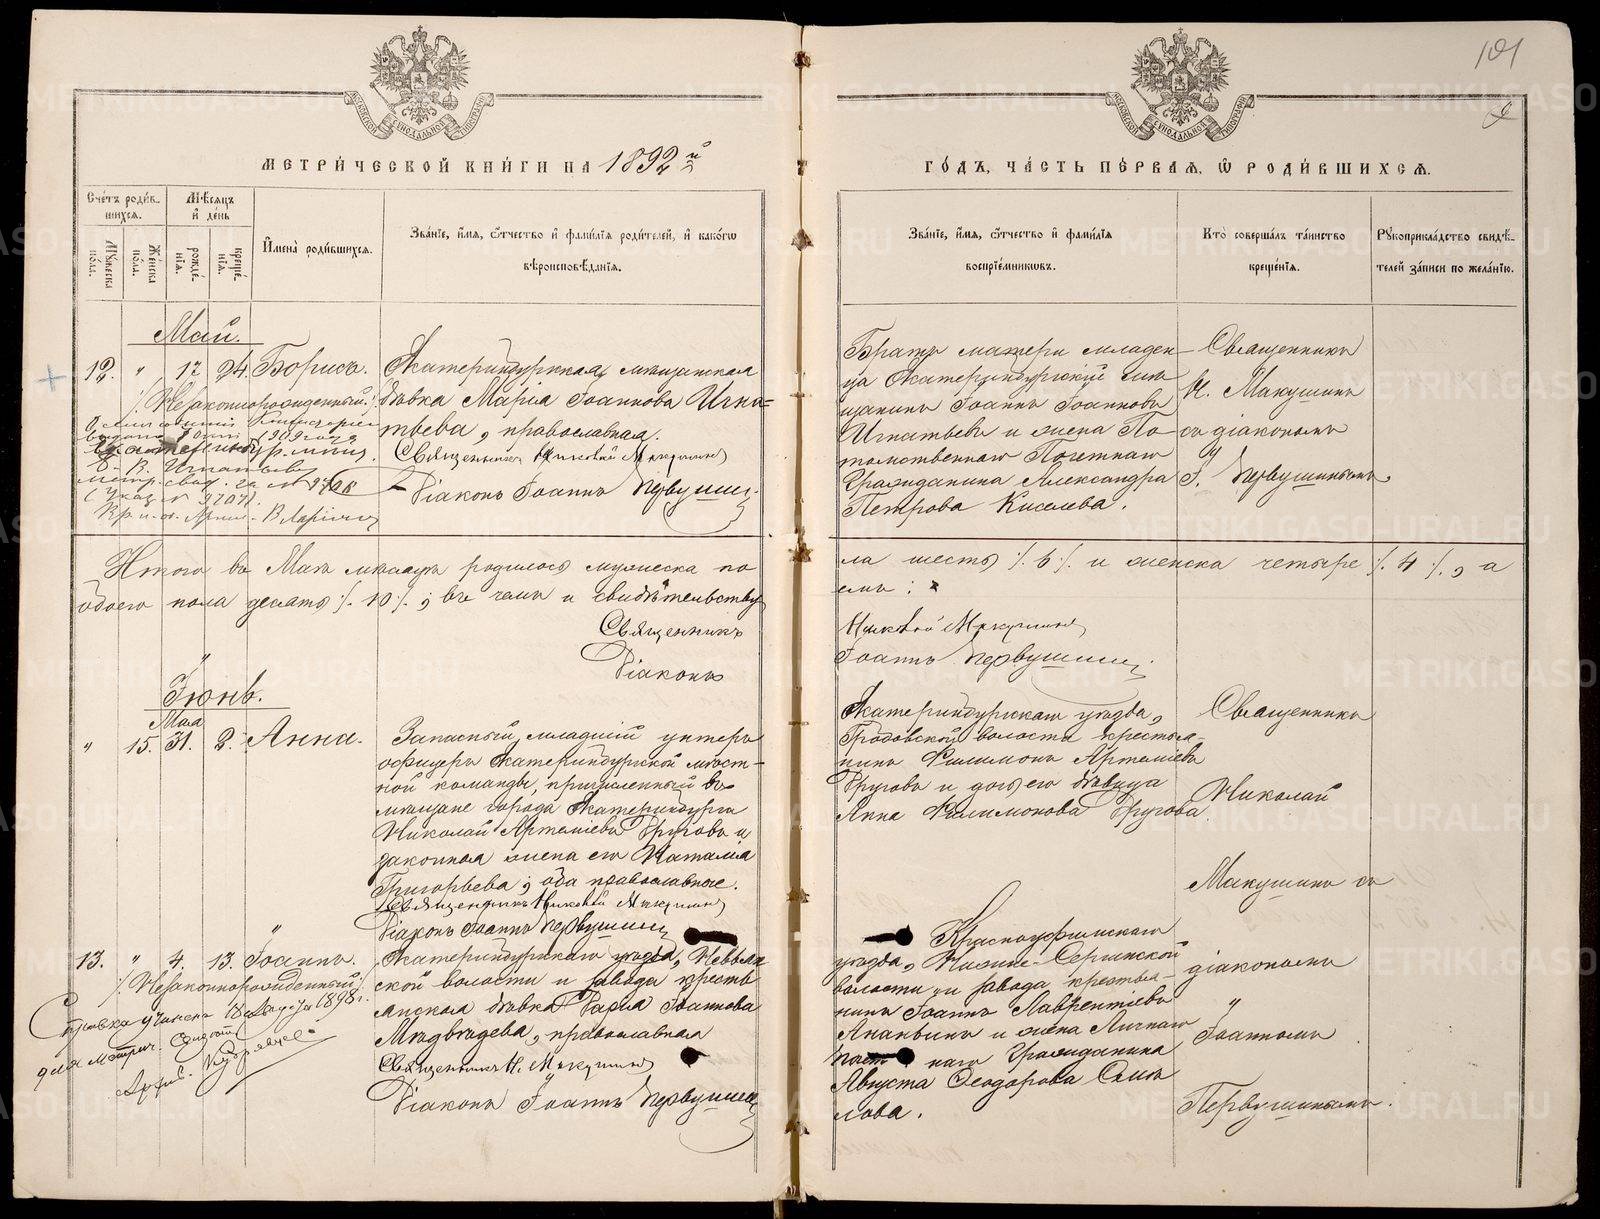 101
МЕТРИ́ЧЕСКОЙ КНИ́ГИ НА 1892 й
ГО́ДЪ, ЧА́СТЬ ПЕ́РВАЯ, Ѡ РОДИ́ВШИХСѦ.
Сче́тъ роди́в-
шихсѧ.
Мѣ́сѧцъ
и҆ де́нь
Мꙋ́жеска по́ла.
Же́нска по́ла.
рожде́нїѧ.
креще́нїѧ.
И҆мена̀ роди́вшихсѧ.
Зва́нїе, и҆́мѧ, ѻ҆́тчество и҆ фами́лїѧ роди́телей, и҆ како́гѡ
вѣроисповѣ́данїѧ.
Зва́нїе, и҆́мѧ, ѻ҆́тчество и҆ фами́лїѧ
воспрїе́мниковъ.
Кто̀ соверша́лъ та́инство
креще́нїѧ.
Рꙋкоприкла́дство свидѣ́-
телей за́писи по жела́нїю.
Май.
12. " 17 24. Борисъ.
/. Незаконнорожденный./.
Екатеринбургская мѣщанская
дѣвка Марія Іоаннова Игна=
тьева, православная.
Священникъ Николай Макушинъ
Діаконъ Іоаннъ Первушинъ
Братъ матери младен-
ца Екатеринбургскій мѣ
щанинъ Іоаннъ Іоанновъ
Игнатьевъ и жена По-
томственнаго Почетнаго
Гражданина Александра
Петрова Киселева.
Священникъ
Н. Макушинъ
съ діакономъ
І. Первушинымъ.
Итого въ Маѣ мѣсяцѣ родилось мужеска по
ла шесть /. 6 /. и женска четыре /. 4 /., а
обоего пола десять /. 10 /. ; въ чемъ и свидѣтельству
емъ :
Священникъ
Николай Макушинъ
Діаконъ
Іоаннъ Первушинъ.
Іюнь.
Мая
" 15. 31. 2. Анна.
Запасный младшій унтеръ
офицеръ Екатеринбургской мѣст-
ной команды, причисленный въ
мѣщане города Екатеринбурга
Николай Артеміевъ Друговъ и
законная жена его Наталія
Григорьева; оба православные.
Священникъ Николай Макушинъ
Діаконъ Іоаннъ Первушинъ
Екатеринбургскаго уѣзда,
волости крестья-
нинъ Филимонъ Артеміевъ
Друговъ и дочь его дѣвица
Анна Филимонова Другова.
Священникъ
Николай
Макушинъ съ
діакономъ
"
Іоанномъ
Первушинымъ.
13. " 4. 13. Іоаннъ.
/. Незаконнорожденный./
Справка учинена 18 Августа 1898 г.
для метрич.
Екатеринбургскаго уѣзда, Невьян
ской волости и завода кресть
янская дѣвка Дарія Іоаннова
Медвѣдева, православная
Священникъ Н. Макушинъ
Діаконъ Іоаннъ Первушинъ
Красноуфимскаго
уѣзда, Нижне-Сергинской
волости и завода крестья-
нинъ Іоаннъ Лаврентіевъ
Ананьинъ и жена Личнаго
Почет наго Гражданина
Августа Ѳеодорова
лова.
METRIKI.GASO-URAL.RU